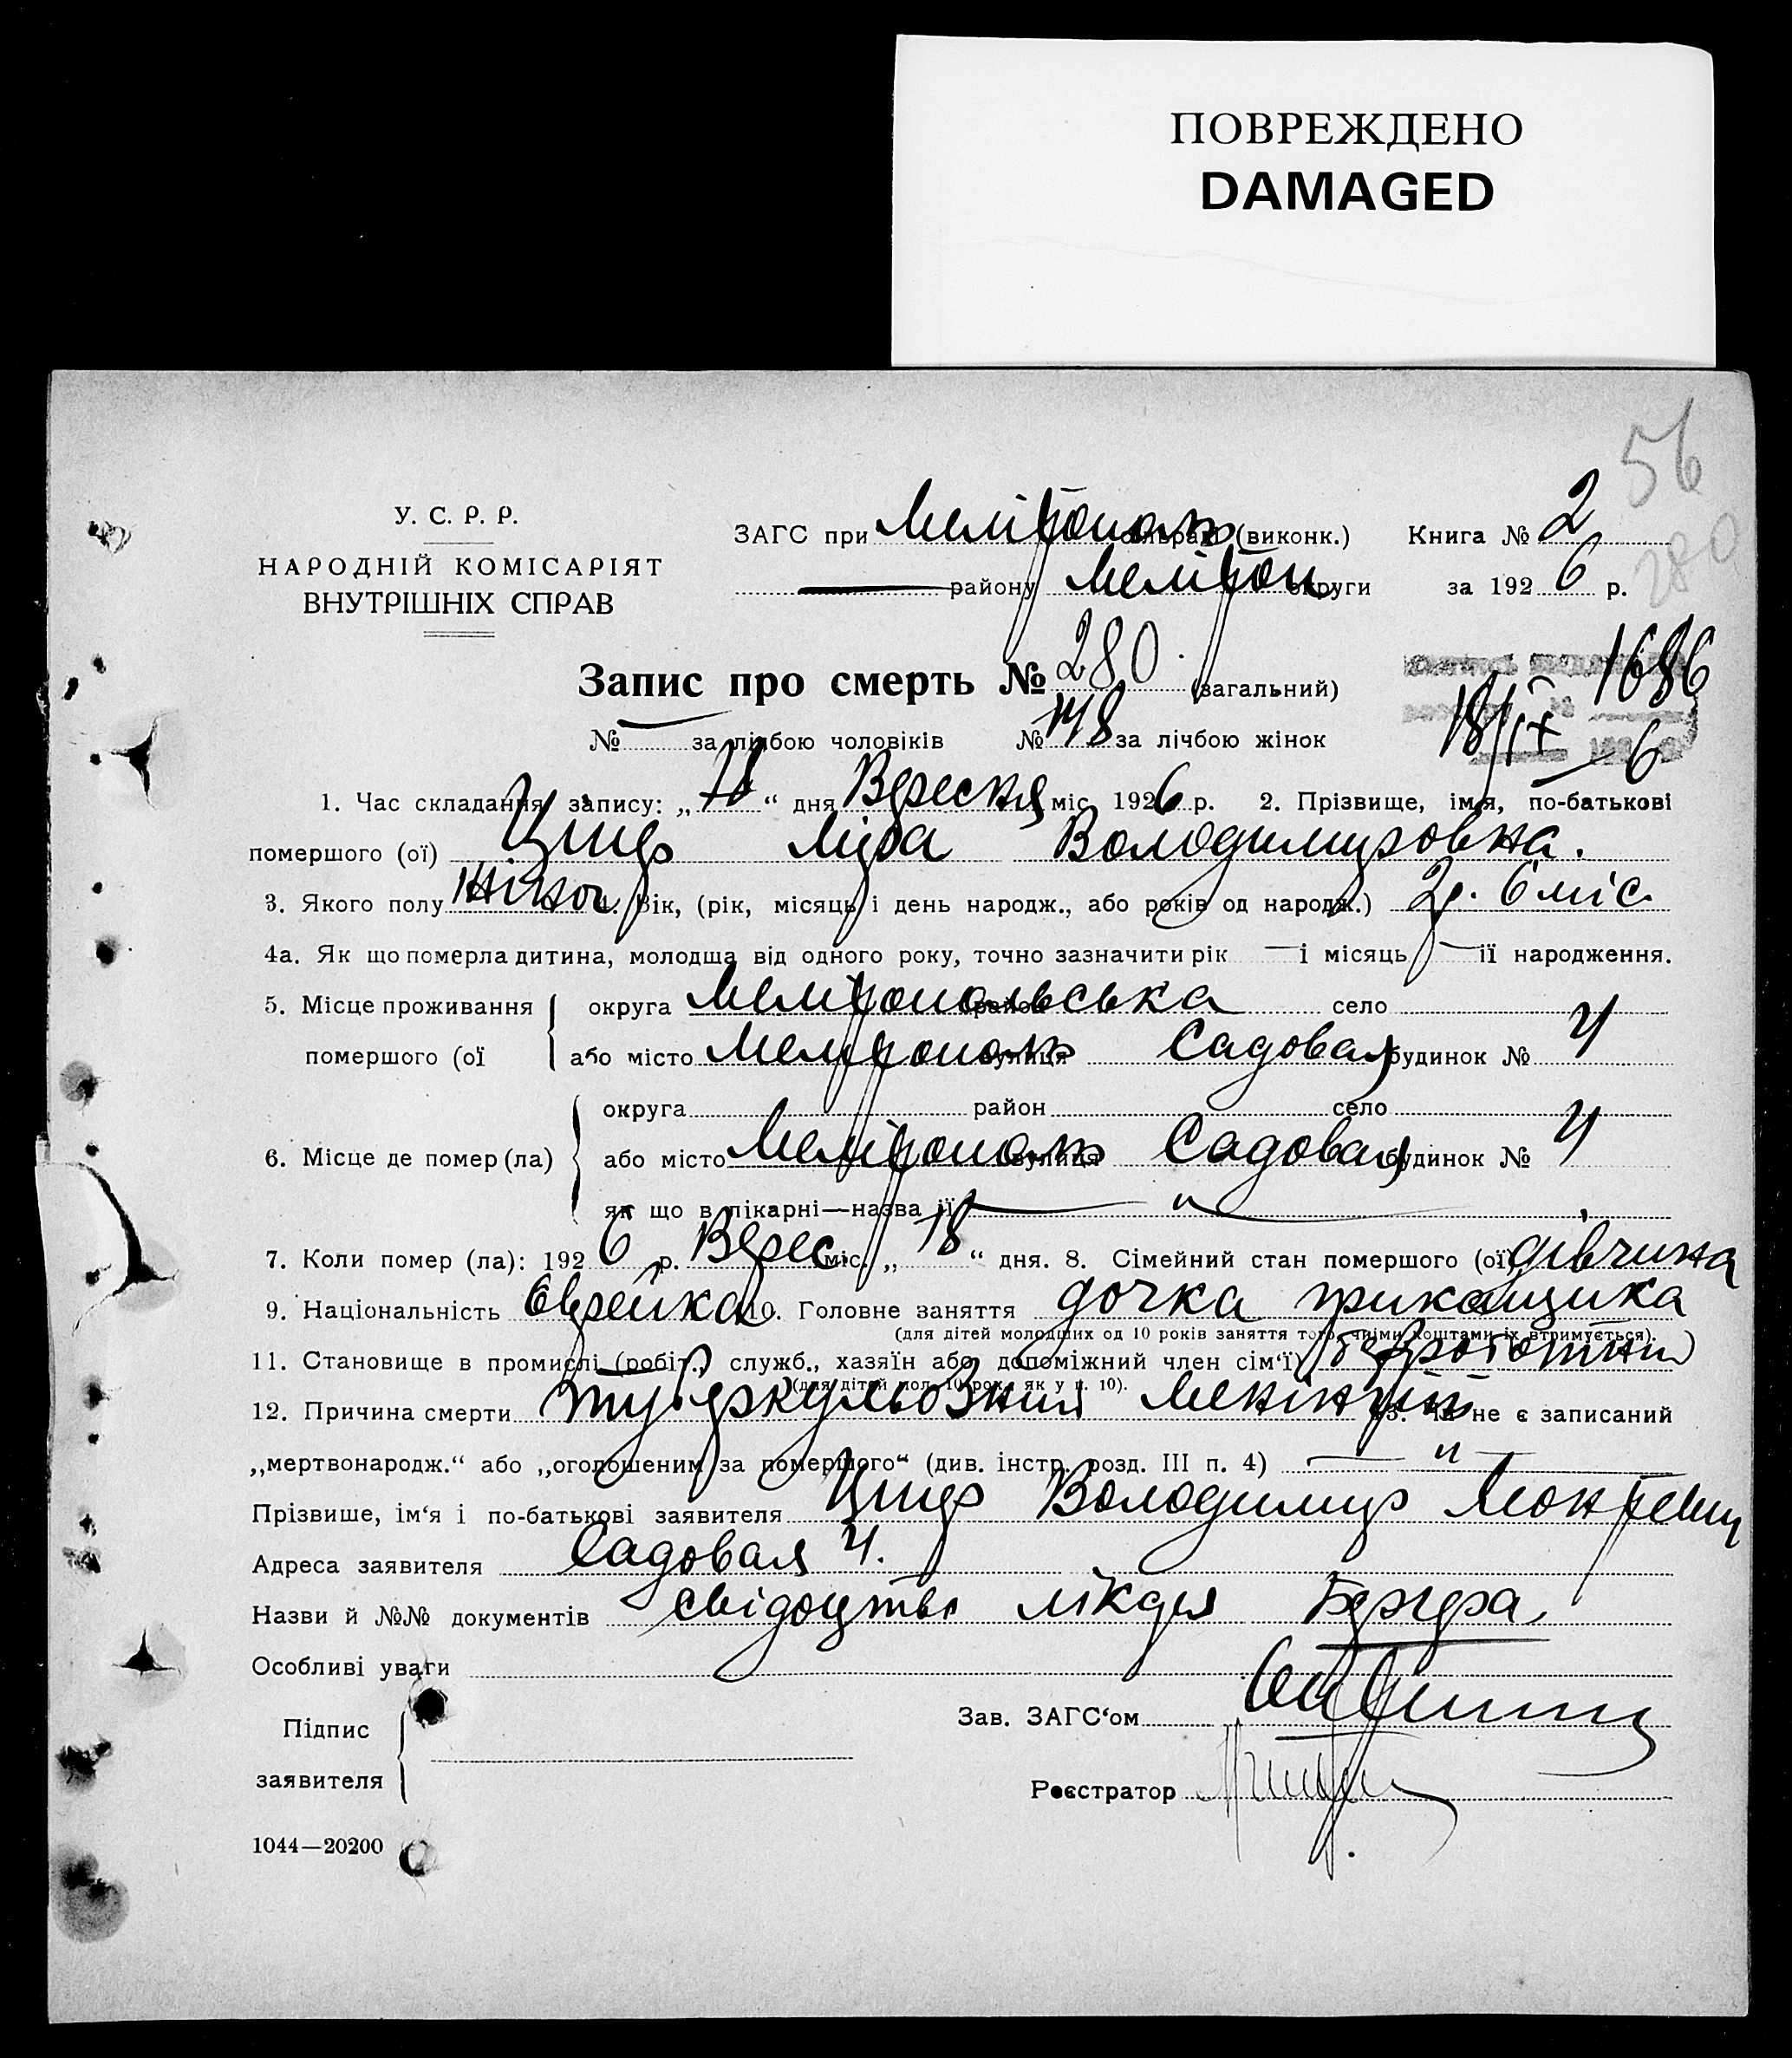 ПОВРЕЖДЕНО
DAMAGED
56
280
У. С. Р. Р.
НАРОДНІЙ КОМІСАРІЯТ
ВНУТРІШНІХ СПРАВ
ЗАГС при Мелітополь сільраді (виконк.) Книга № 2
району Мелітоп округи за 1926 р.
Запис про смерть № 280 (загальний)
1686
№ — за лічбою чоловіків № 148 за лічбою жінок
18/IX – 6
1. Час складання запису: „ “ дня Вересня міс. 1926 р. 2. Прізвище, ім'я, по-батькові
помершого (ої) Ліра Володимировна.
3. Якого полу жіноч 4. Вік, (рік, місяць і день народж., або років од народж.) 2р. 6 міс.
4а. Як що померла дитина, молодша від одного року, точно зазначити рік — і місяць — її народження.
5. Місце проживання округа Мелітопольська район село
помершого (ої або місто Мелітополь вулиця Садовая будинок № 4
округа район село
6. Місце де помер (ла) або місто Мелітополь вулиця Садовая будинок № 4
як що в лікарні—назва її — „ —
7. Коли помер (ла): 1926 р. Верес міс. „ 18 “ дня. 8. Сімейний стан помершого (ої) дівчина
9. Національність Єврейка 10. Головне заняття дочка прикащика
(для дітей молодших од 10 років заняття того, чиїми коштами їх втримується).
11. Становище в промислі (робіт., служб., хазяїн або допоміжний член сім'ї) безработный
(для дітей мол. 10 рок. як у п. 10).
12. Причина смерти туберкульозний менінгіт 13. Чи не є записаний
„мертвонародж.“ або „оголошеним за помершого“ (див. інстр. розд. III п. 4) — „ —
Прізвише, ім'я і по-батькові заявителя Володимир
Адреса заявителя Садовая 4.
Назви й №№ документів свідоцтво лікаря Бергера
Особливі уваги
Підпис
заявителя
Зав. ЗАГС'ом
Реєстратор
1044—20200